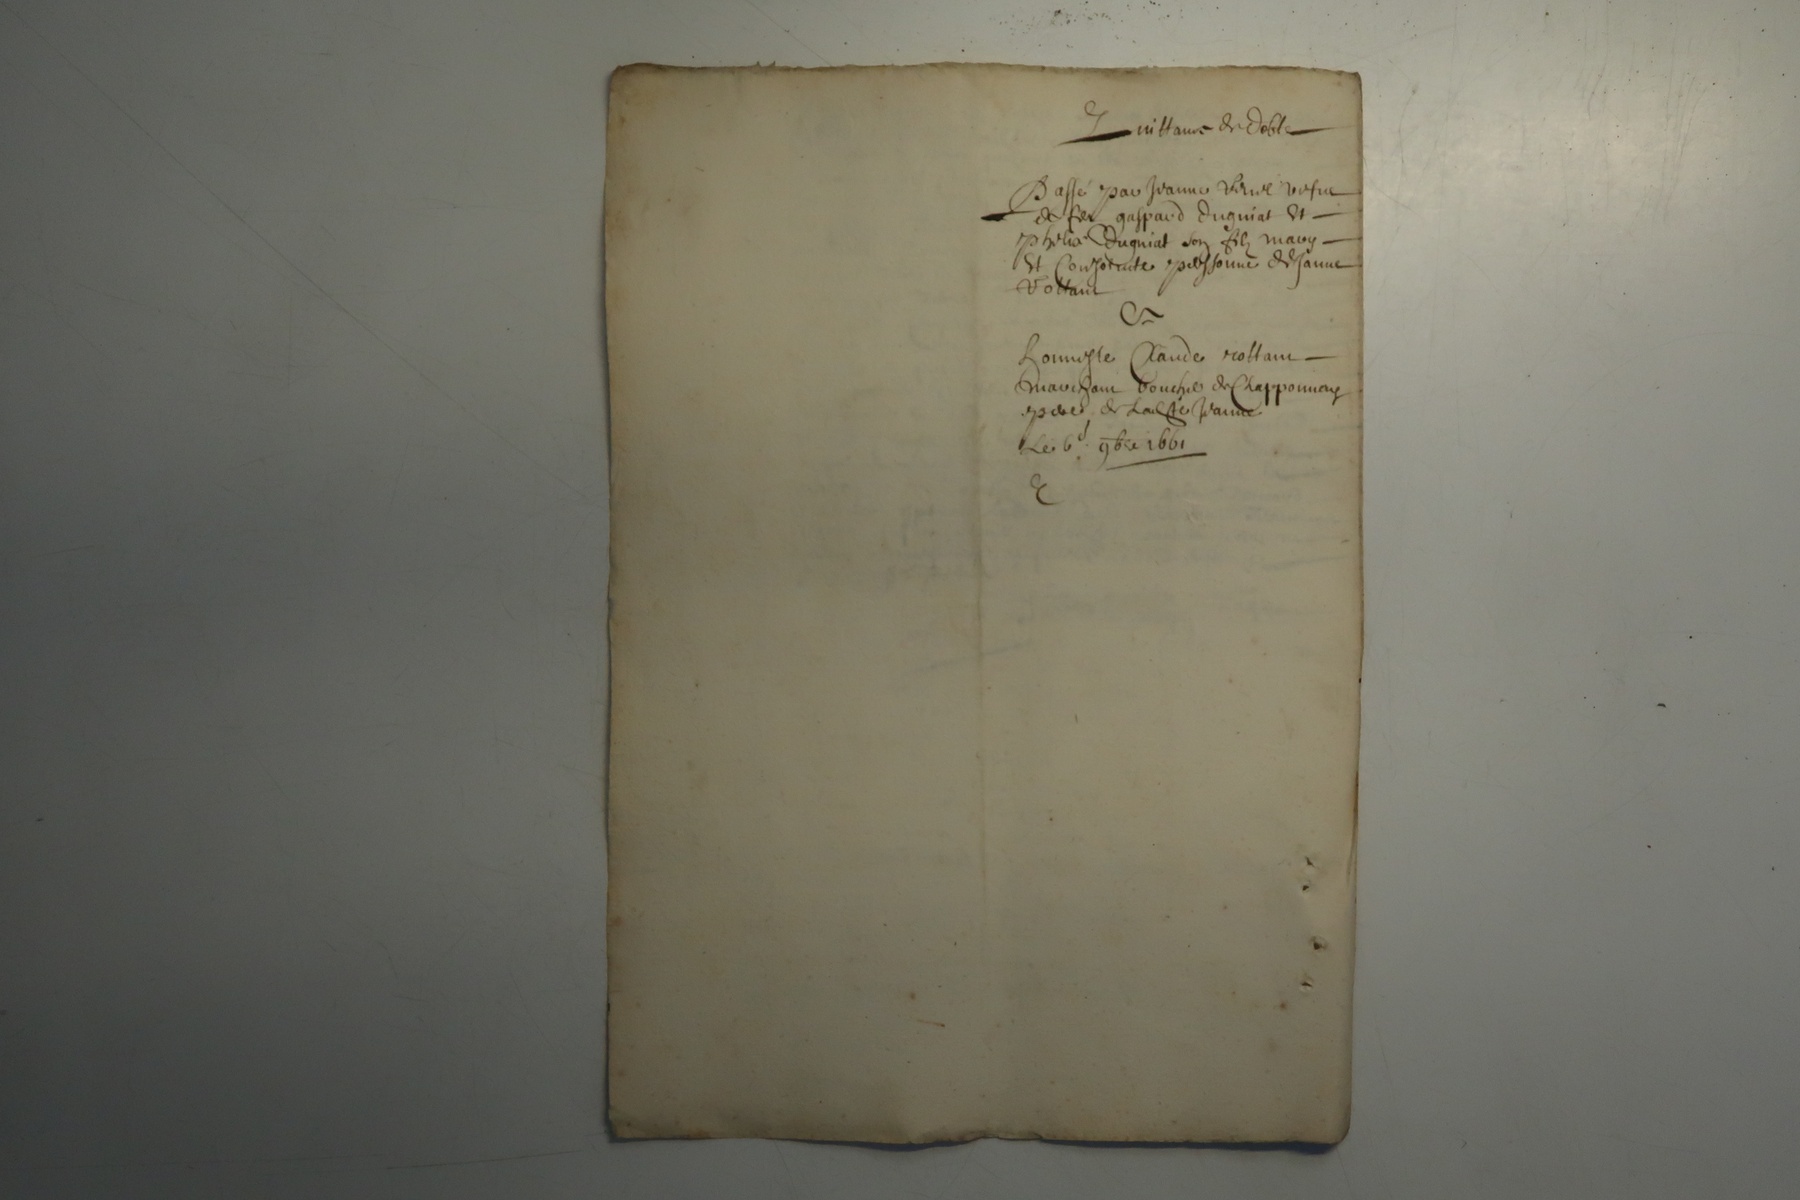 Quittance de doble
Passé par Jeanne vefve
de feu gaspard duguiat Et
phelix Duguiat son filz mary
Et Conjoincte personne de Janne
Rottani
A
honneste Claude rottani
marchant boucher de Chapponnay
pere de Jeanne
Le 6e 9bre 1661